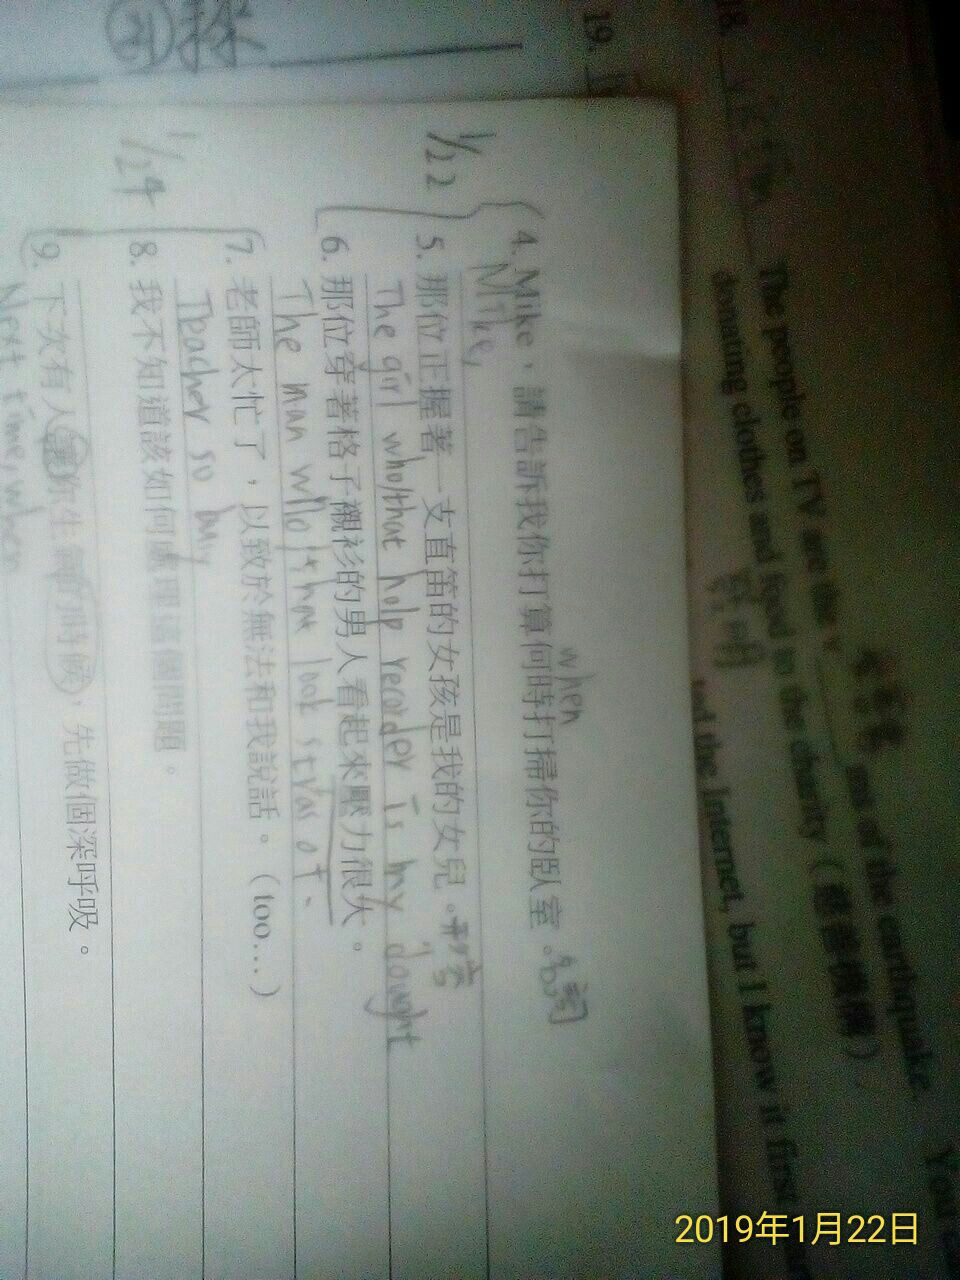 (21)
19.
18.
The people on TV are the v
ms of the earthquake.
donating clothes and food to the charity (慈善機構).
the Internet, but I know it first
1/22
4. Mike,請告訴我你打算何時打掃你的臥室。名詞
when
Mike,
5. 那位正握著一支直笛的女孩是我的女兒。
The girl who/that help recorder is my dought
6. 那位穿著格子襯衫的男人看起來壓力很大。
The man who/that look stras ot.
7. 老師太忙了,以致於無法和我說話。(too....)
Teacher so busy
1/24
8. 我不知道該如何處理這個問題。
9. 下次有人讓你生氣的時候,先做個深呼吸。
Next time, when
2019年1月22日